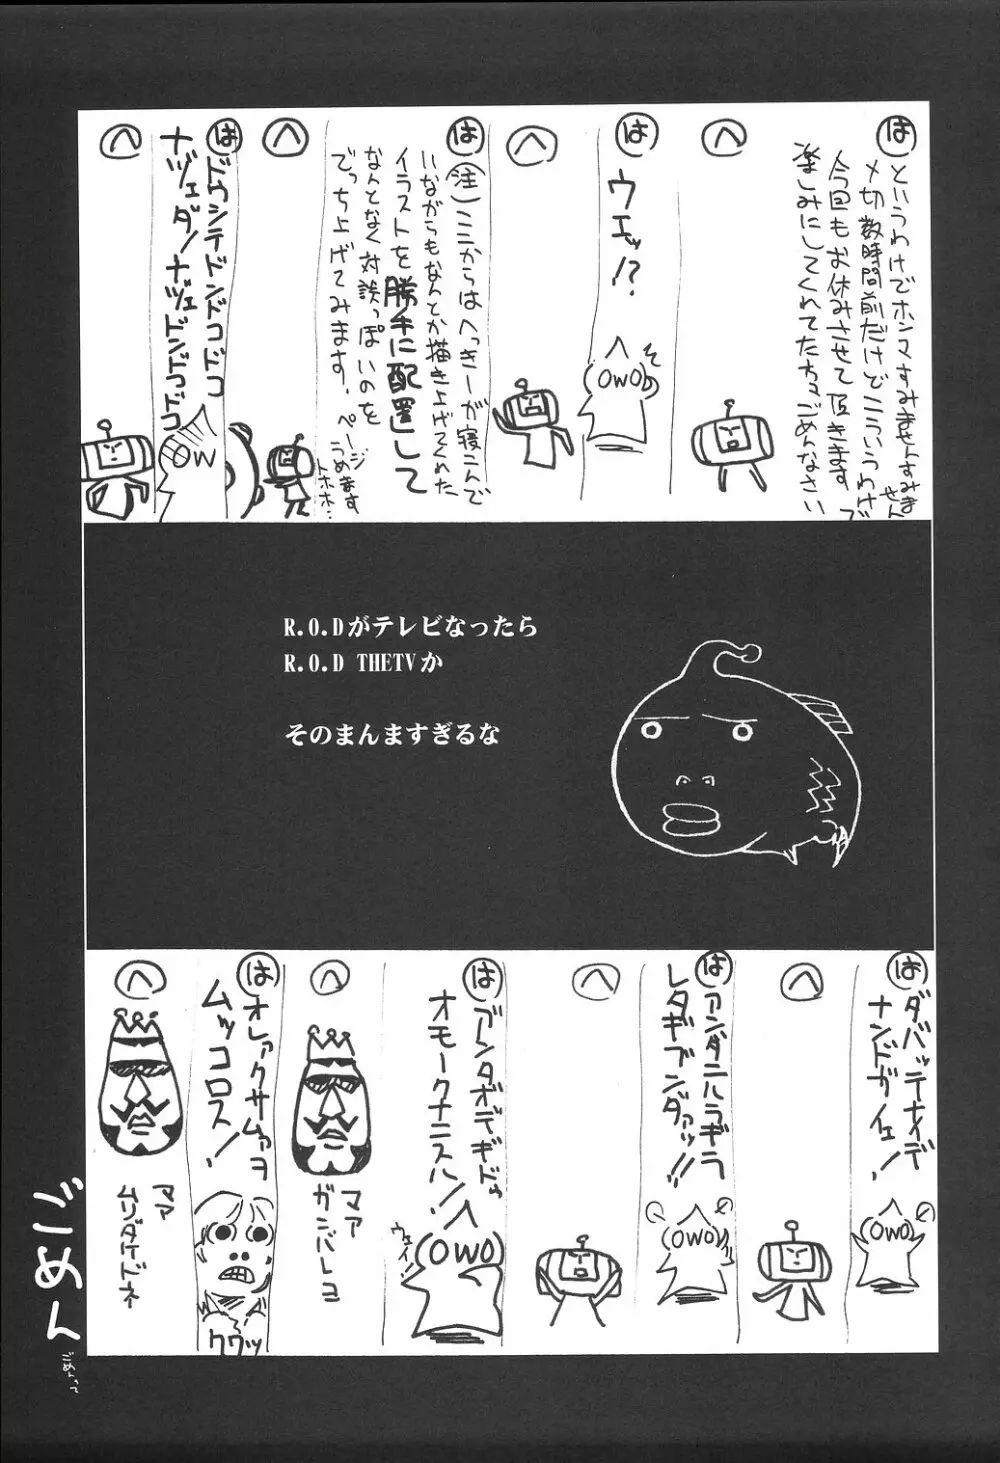 は
というわけでホンマすみませんすみません
〆切数時間前だけどこういうわけで
今回もお休みさせて頂きます
楽しみにしてくれてた方々ごめんなさい
へ
は
ウエッ!?
OWO
へ
は
注)ここからはへっきーが寝こんで
いながらもなんとか描き上げてくれた
イラストを勝手に配置して
なんとなく対談っぽいのを
でっち上げてみます。ページ
うめます
トホホ…
へ
は
ドゥシテドンドコドコ
ナヅェダ!ナヅェドンドコドコ
OW
へ
R.O.Dがテレビなったら
R.O.D THETVか
そのまんますぎるな
は
ナンドガイェ!
OWO
へ
は
アンダニルラギラ
レタギブンダァッ!!
OWO
へ
は
オモークナニスル!
ウェイ!
OWO
へ
マア
ガンバレヨ
は
オレァクサムァヲ
ムッコロス!
クワッ
へ
ママ
ムリダケドネ
ごめん
ごめんって